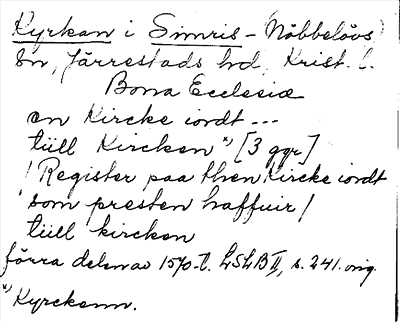 Kyrkan i Simris - (Nöbbelövs)
sn, Järrestads hd, Krist. l.
Bona Ecclesiæ
en Kircke iordt ---
tiill Kircken ˣ⁾ [3 ggr]
/Register paa then Kircke iordt
som presten haffuir/
tiill kircken
förra delen av 1570-t. LSLB II, s. 241. orig.
ˣ⁾ Kyrckenn.